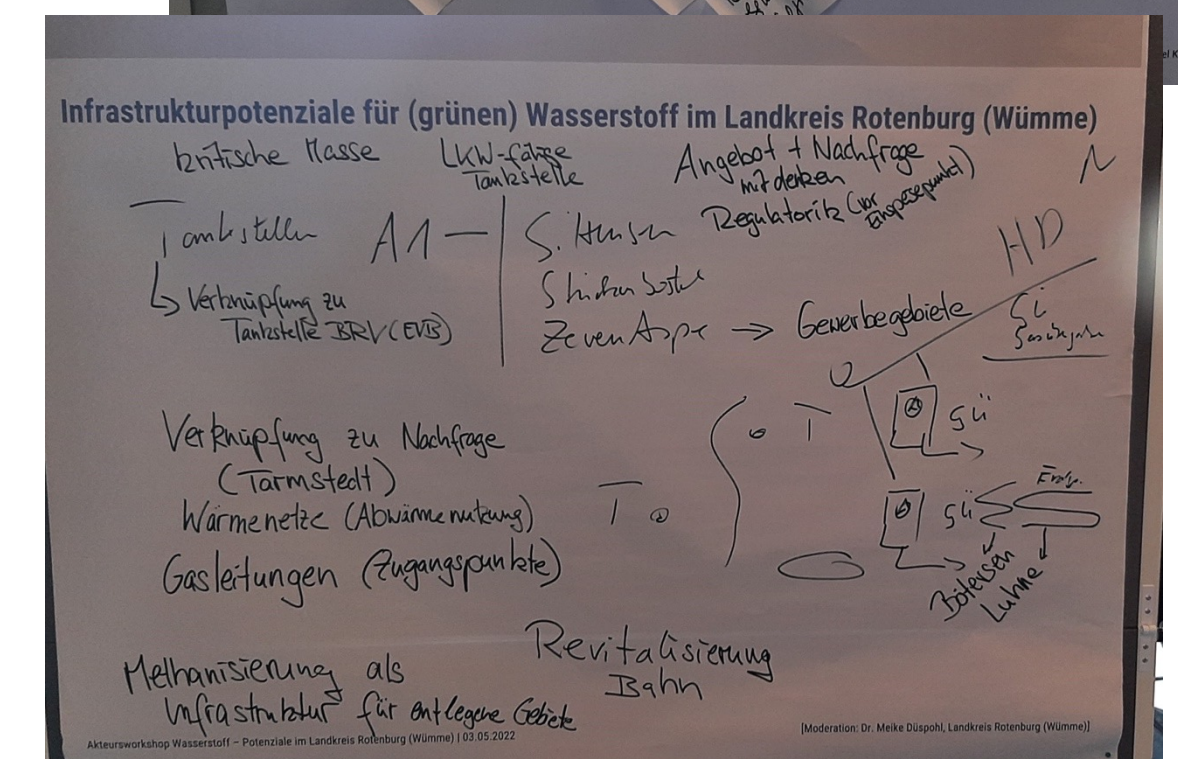 Infrastrukturpotenziale für (grünen) Wasserstoff im Landkreis Rotenburg (Wümme)
kritische Masse
LKW-fähige
Tankstelle
Angebot + Nachfrage
mitdenken
Regulatorik (vor
Einspeisepunkt)
N
Tankstellen A1 —
↳ Verknüpfung zu
Tankstelle BRV (EVB)
Zeven Aspe → Gewerbegebiete
HD
GÜ
T
GÜ
Verknüpfung zu Nachfrage
(Tarmstedt)
Wärmenetze (Abwärmenutzung)
Gasleitungen (Zugangspunkte)
T
Bötersen
Luhne
Revitalisierung
Bahn
Methanisierung als
Infrastruktur für entlegene Gebiete
Akteursworkshop Wasserstoff – Potenziale im Landkreis Rotenburg (Wümme) | 03.05.2022
[Moderation: Dr. Meike Düspohl, Landkreis Rotenburg (Wümme)]